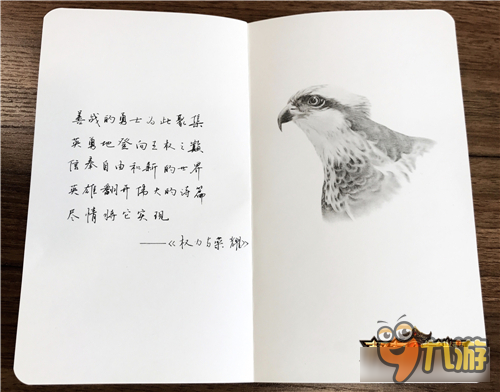 善战的勇士为此聚集
英勇地登向王权之巅
信奉自由和新的世界
英雄翻开伟大的诗篇
尽情将它实现
——《权力与荣耀》
九游